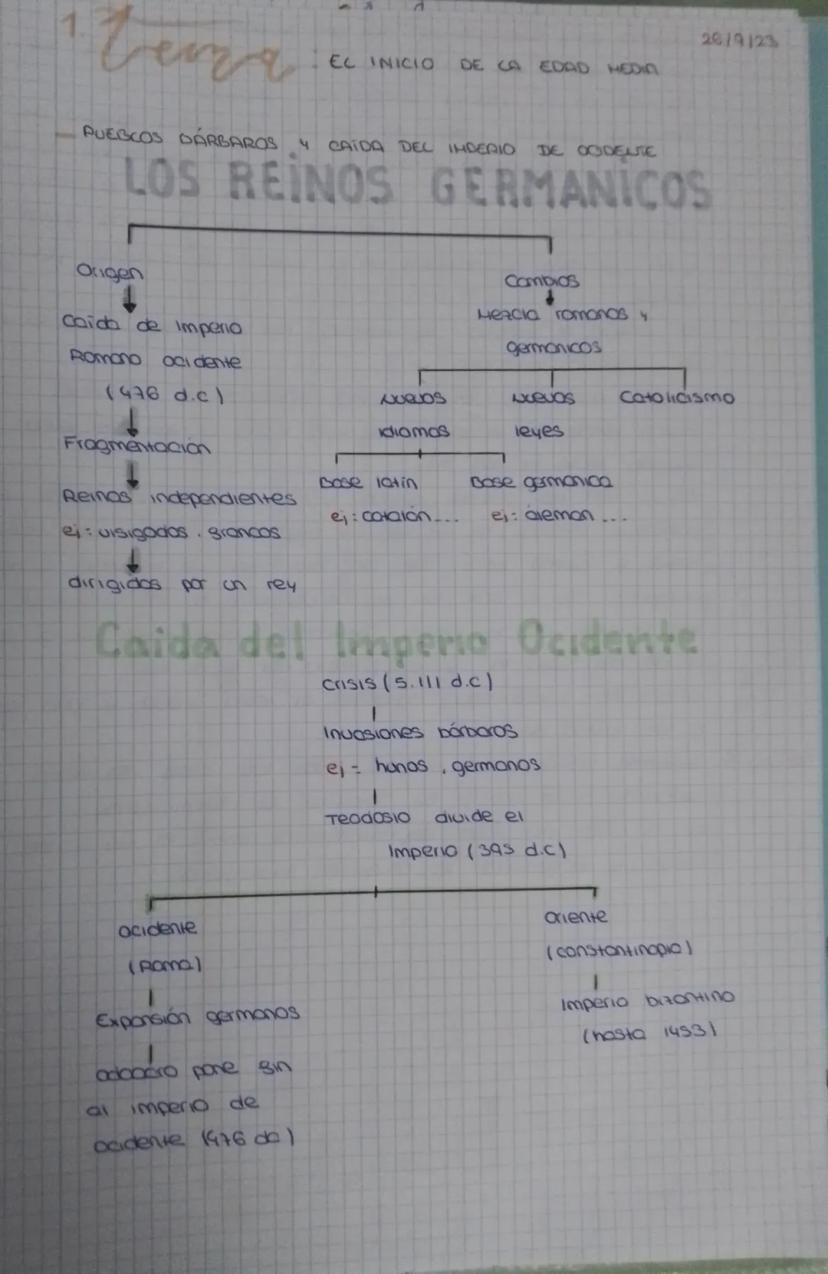 1. Tema : EL INICIO DE LA EDAD MEDIA
28/9/23
- PUEBLOS BÁRBAROS Y CAÍDA DEL IMPERIO DE OCCIDENTE
LOS REINOS GERMANICOS
Origen
Cambios
Caida de imperio
Mezcla romanos y
Romano ocidente
germanicos
(476 d.c)
Nuevos
Nuevos
Catolicismo
idiomas
leyes
Fragmentación
Base latín
Base germanica
Reinos independientes
ej: catalán...
ej: áleman...
ej: visigodos, francos
dirigidos por un rey
Caida del Imperio Ocidente
crisis (S.III d.c)
Invasiones bárbaros
ej = hunos, germanos
Teodosio divide el
Imperio (395 d.c)
ocidente
oriente
(Roma)
(constantinopla)
Expansión germanos
Imperio bizantino
(hasta 1453)
odoacro pone fin
al imperio de
ocidente (476 dc)